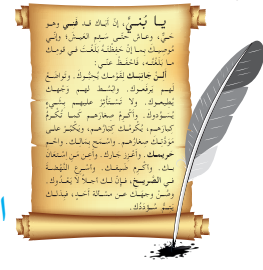 يا بُنَيَّ، إنّ أباك قد فَنِيَ وهو
حَيٌّ، وعاشَ حتَّى سَئِمَ العَيشَ؛ وإنّي
مُوصيكَ بما إنْ حَفِظتَهُ بَلَغْتَ في قومِكَ
ما بَلَغْتُه، فَاحفَظْ عنّي:
ألِنْ جانِبَكَ لقَوْمِكَ يُحِبُّوكَ. وتَواضَعْ
لهم يَرفَعوكَ. وابْسُطْ لهم وَجْهَكَ
يُطِيعوكَ. ولا تَسْتَأْثِرْ عليهم بشَيءٍ
يُسَوِّدوكَ. وأكرِمْ صِغارَهم كما تُكرِمُ
كبارَهم، يُكْرِمْكَ كبارُهم، ويَكْبَرْ على
مَوَدَّتِكَ صِغارُهم. واسْمَحْ بمالِكَ. واحْمِ
حريمَكَ. وأعْزِزْ جارَكَ. وأعِنْ مَن اسْتَعانَ
بكَ. وأكرِمْ ضيفَكَ. وأسْرِعِ النَّهْضَةَ
في الصَّريخِ، فإنّ لكَ أجلاً لا يَعْدُوكَ.
وصُنْ وجهَكَ عن مسألةِ أحَدٍ، فبذلكَ
يَتِمُّ سُؤدَدُكَ.